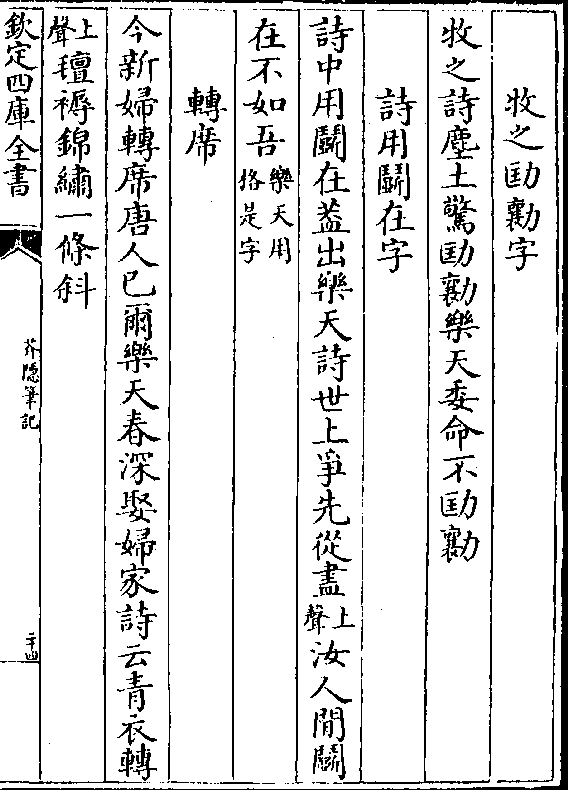 牧之劻勷字
牧之詩塵土驚劻勷樂天委命不劻勷
詩用鬭在字
詩中用鬭在葢出樂天詩世上爭先從盡上聲汝人間鬭
在不如吾樂天用格是字
轉席
今新婦轉席唐人已爾樂天春深娶婦家詩云青衣轉
上聲氊褥錦繡一條斜
欽定四庫全書
芥隱筆記
二十四